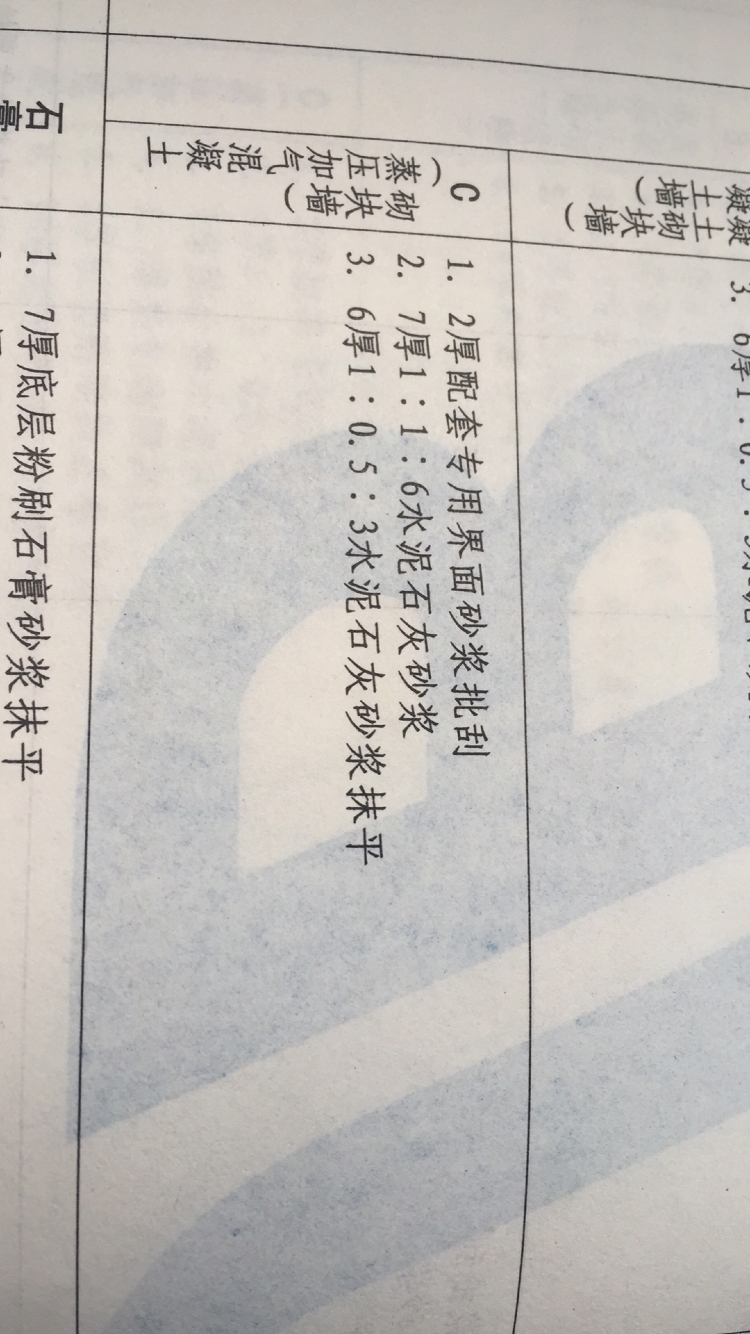 凝土墙
凝土砌块墙)
3. 6厚1:0.5:
C
(蒸压加气混凝土
砌块墙)
1. 2厚配套专用界面砂浆批刮
2. 7厚1:1:6水泥石灰砂浆
3. 6厚1:0.5:3水泥石灰砂浆抹平
石膏
1. 7厚底层粉刷石膏砂浆抹平